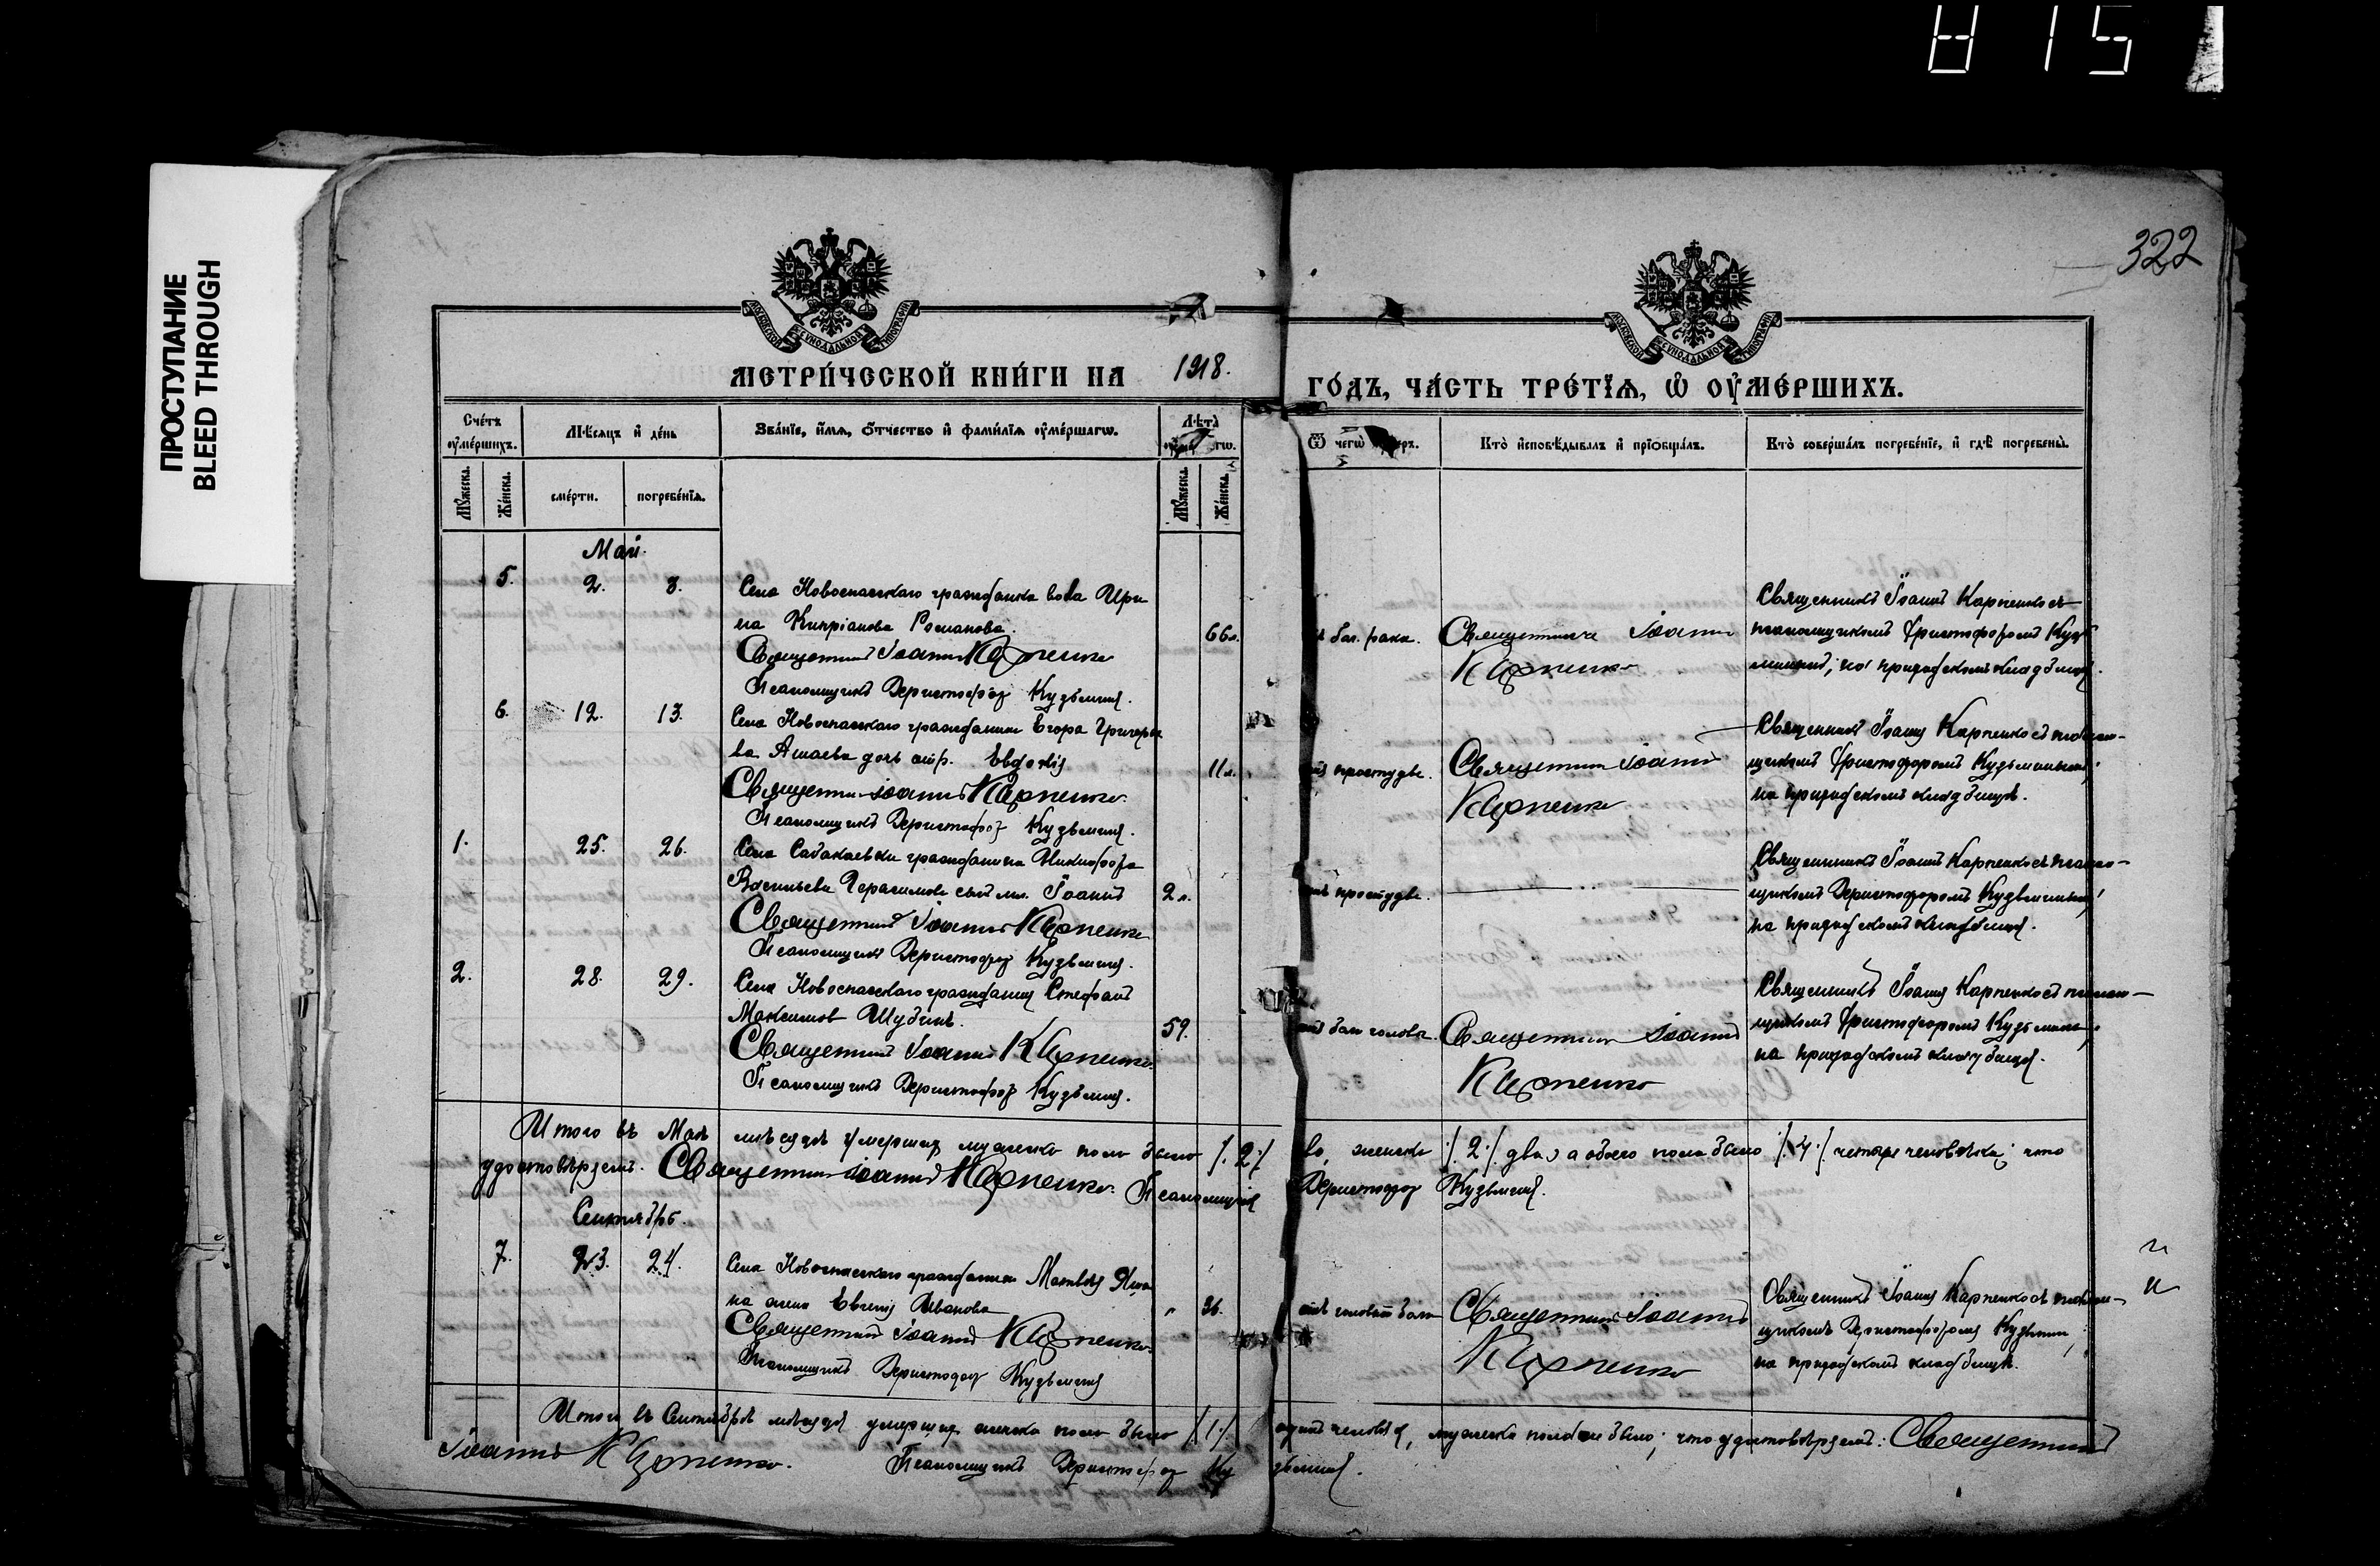 815
ПРОСТУПАНИЕ
BLEED THROUGH
322
МОСКОВСКОЙ СѴНОДАЛЬНОЙ ТИПОГРАФІИ
МОСКОВСКОЙ СѴНОДАЛЬНОЙ ТИПОГРАФІИ
МЕТРИ́ЧЕСКОЙ КНИ́ГИ НА 1918. ГО́ДЪ, ЧА́СТЬ ТРЕ́ТЇѦ, Ѿ ОУ҆МЕ́РШИХЪ.
Сче́тъ оу҆ме́ршихъ.
Мѣ́сяцъ и҆ де́нь
Зва́нїе, и҆́мя, ѻ҆́тчество и҆ фами́лїя оу҆ме́ршагѡ.
Лѣ́та
Ѿ чегѡ̀
Кто̀ и҆сповѣ́дывалъ и҆ прїѡбща́лъ.
Кто̀ соверша́лъ погребе́нїе, и҆ гдѣ̀ погребены̀.
Мꙋ́жеска.
Же́нска.
сме́рти.
погребе́нїя.
Мꙋ́жеска.
Же́нска.
Май.
5. 2. 3.
Села Новоспасскаго гражданка вдова Ири
на Кипріанова Романова.
66л.
рака.
Священникъ Іоаннъ Карпенко
Псаломщикъ Христофоръ Кузьминъ.
Священникъ Іоаннъ
Карпенко
Священникъ Іоаннъ Карпенко съ
псаломщикомъ Христофоромъ Кузь
минымъ, на приходскомъ кладбищѣ.
6. 12. 13.
Села Новоспасскаго гражданина Егора Григорье
ва дочь Евдокія
11л.
простуды.
Священникъ Іоаннъ Карпенко.
Псаломщикъ Христофоръ Кузьминъ.
Священникъ Іоаннъ
Карпенко
Священникъ Іоаннъ Карпенко съ псалом-
щикомъ Христофоромъ Кузьминымъ,
на приходскомъ кладбищѣ.
1. 25. 26.
Села Сабакаевки гражданина Никифора
Васильева Герасимова сынъ мл. Іоаннъ
2л.
простуды.
Священникъ Іоаннъ Карпенко
Псаломщикъ Христофоръ Кузьминъ.
Священникъ Іоаннъ Карпенко съ псалом-
щикомъ Христофоромъ Кузьминымъ,
на приходскомъ кладбищѣ.
2. 28. 29.
Села Новоспасскаго гражданинъ Стефанъ
Максимовъ Шубинъ.
59.
боли головы.
Священникъ Іоаннъ Карпенко.
Псаломщикъ Христофоръ Кузьминъ.
Священникъ Іоаннъ
Карпенко
Священникъ Іоаннъ Карпенко съ псалом-
щикомъ Христофоромъ Кузьминымъ,
на приходскомъ кладбищѣ.
Итого въ Маѣ мѣсяцѣ умершихъ мужеска пола было /.2./ женска /.2./ два, а обоего пола было /.4./ четыре человѣка, что
удостовѣряемъ. Священникъ Іоаннъ Карпенко. Псаломщикъ Христофоръ Кузьминъ.
Сентябрь.
7. 23. 24.
Села Новоспасскаго гражданина Матвѣя
на жена Евгенія Иванова
36.
головной боли
Священникъ Іоаннъ Карпенко.
Псаломщикъ Христофоръ Кузьминъ
Священникъ Іоаннъ
Карпенко
Священникъ Іоаннъ Карпенко съ псалом-
щикомъ Христофоромъ Кузьминымъ,
на приходскомъ кладбищѣ.
Итого въ Сентябрѣ мѣсяцѣ умершихъ женска пола было /.1./ одинъ человѣкъ, мужеска пола не было; что удостовѣряемъ: Священникъ
Іоаннъ Карпенко. Псаломщикъ Христофоръ Кузьминъ.